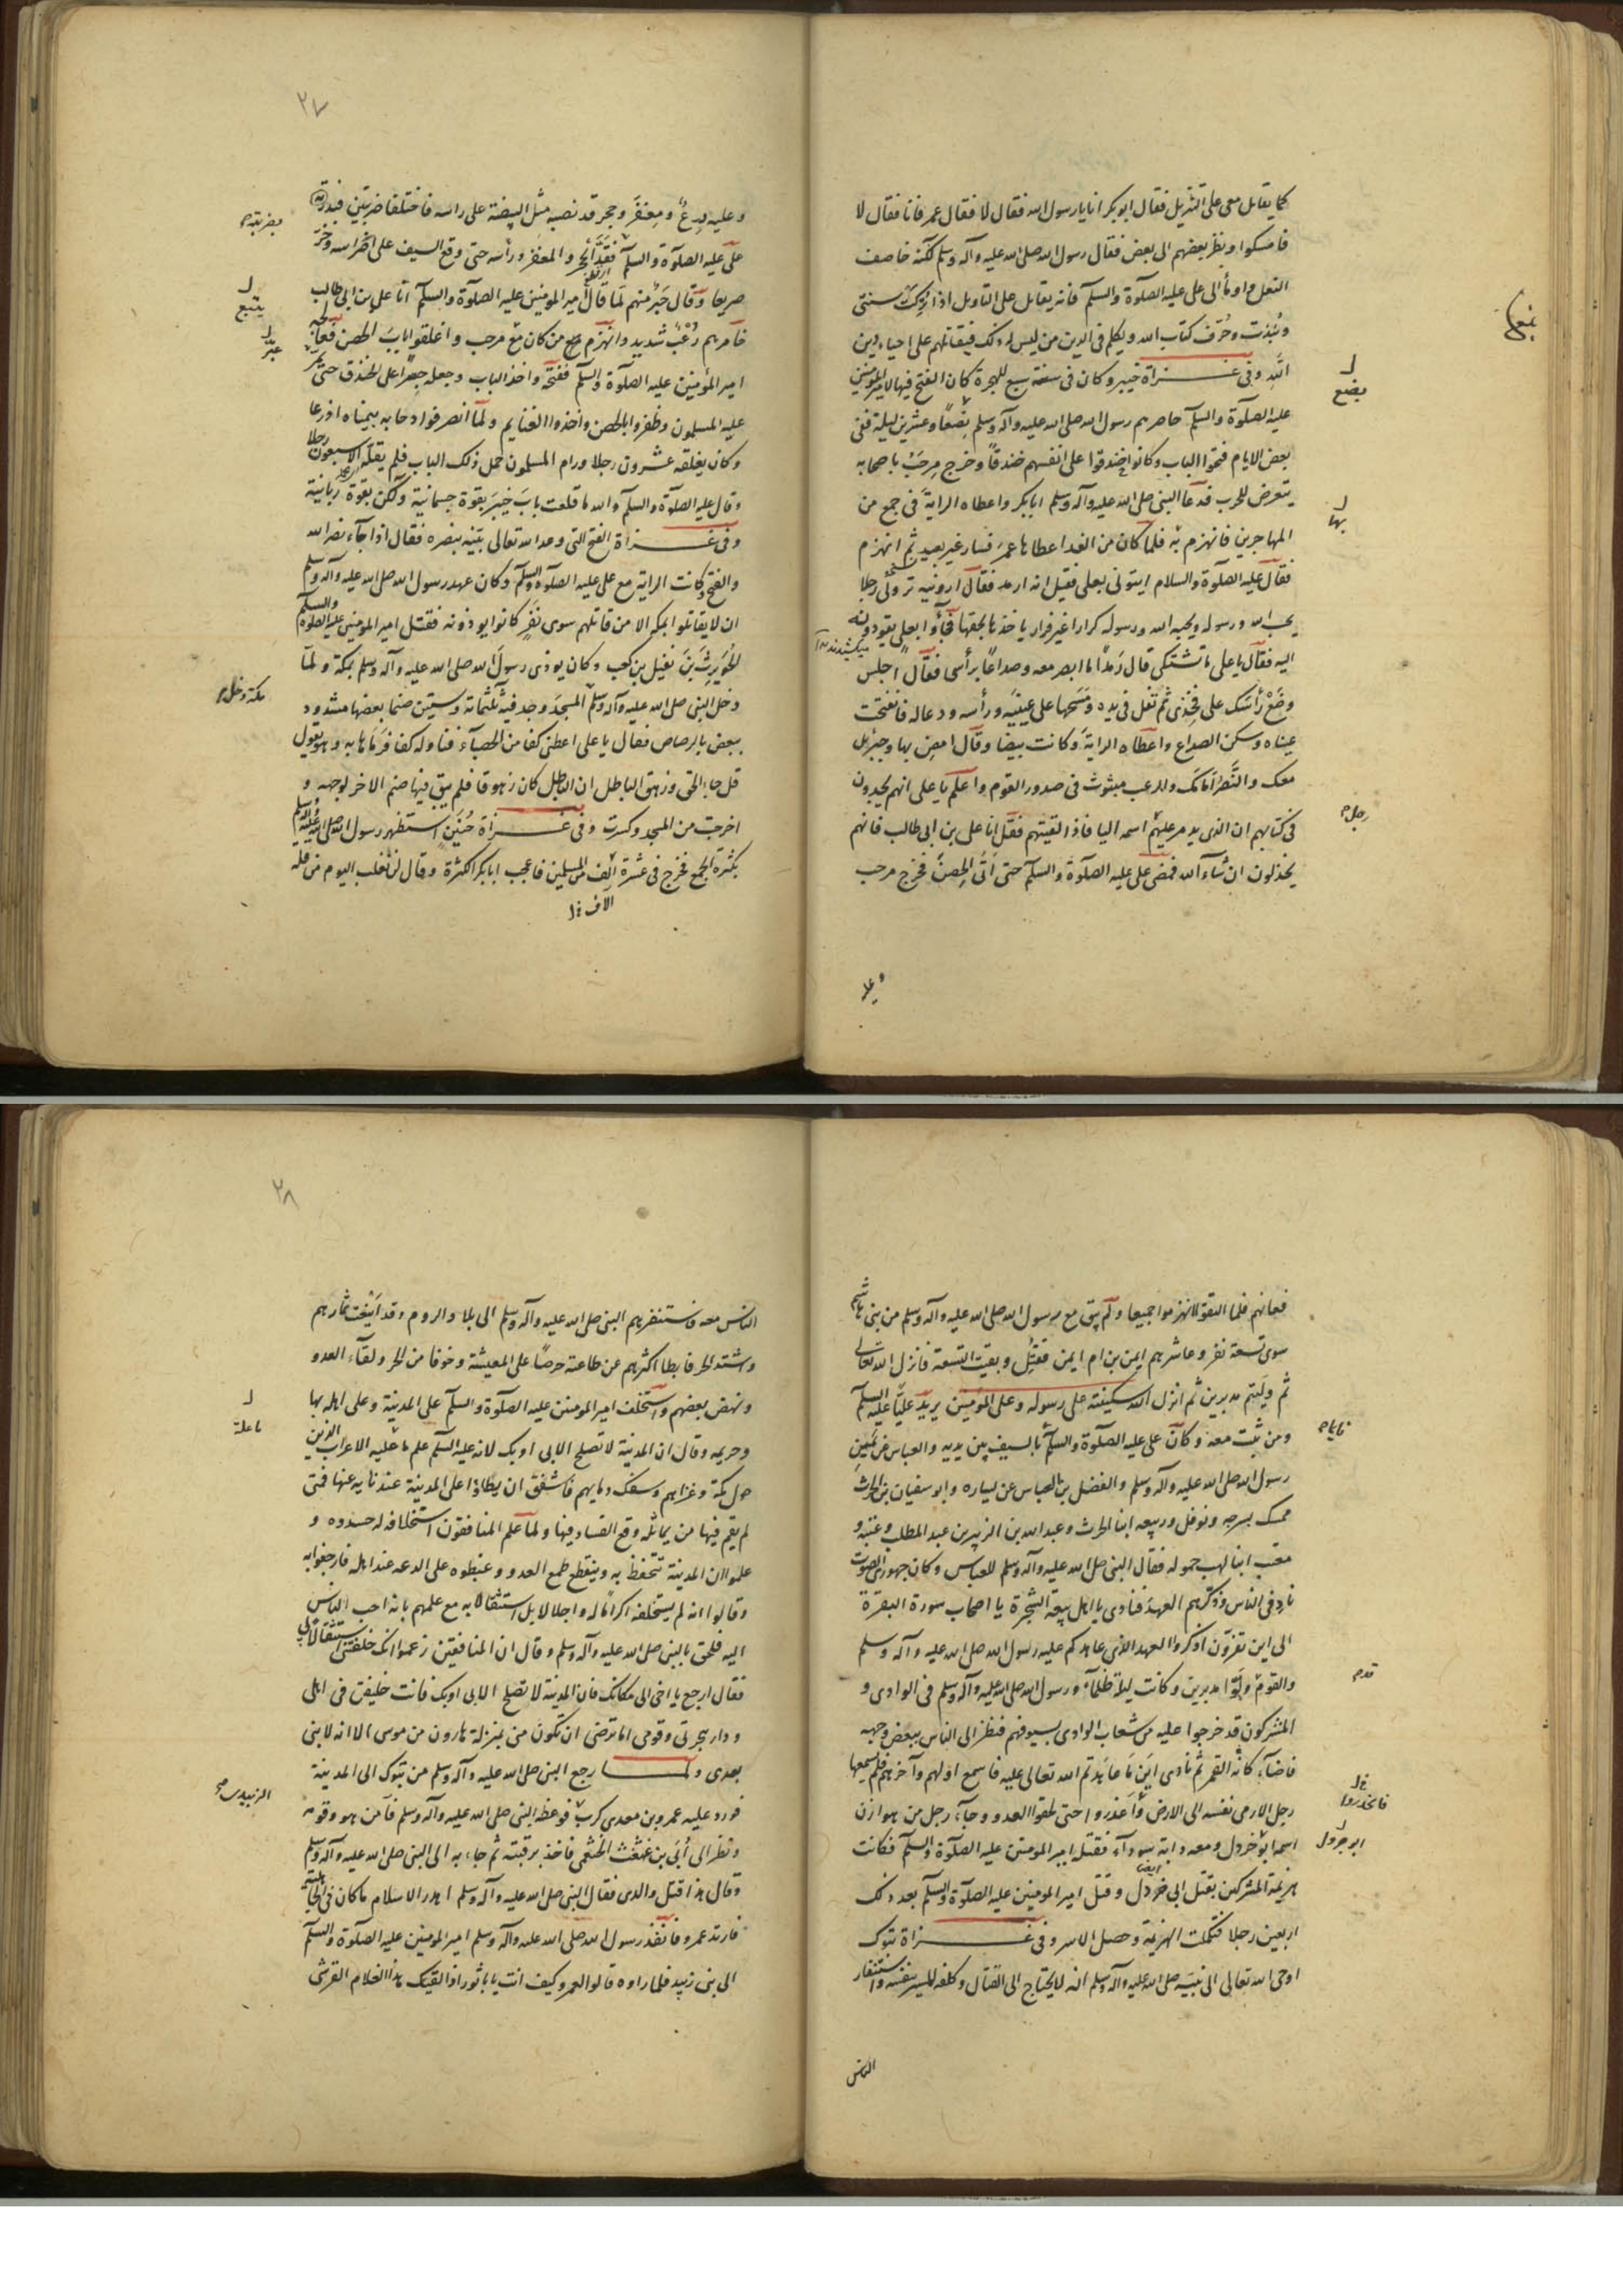 كما يقاتل معى على التنزيل فقال ابوبكر انا يا رسول الله فقال لا فقال عمر فانا فقال لا
فامسكوا ونظر بعضهم الى بعض فقال رسول الله صلى الله عليه وآله وسلم لكنه خاصف
النعل واومأ الى على عليه الصلوة والسلم فانه يقاتل على التاويل اذا تركت سنتى
ونبذت وحرف كتاب الله وتكلم فى الدين من ليس له ذلك فيقاتلهم على احياء دين
الله وفى غزاة خيبر وكان فى سنة سبع للهجرة كان الفتح فيها لامير المؤمنين
عليه الصلوة والسلم حاصرهم رسول الله صلى الله عليه وآله وسلم بضعا وعشرين ليلة ففى
بعض الايام فتحوا الباب وكانوا خندقوا على انفسهم خندقا وخرج مرحب باصحابه
يتعرض للحرب فدعا النبى صلى الله عليه وآله وسلم ابابكر واعطاه الراية فى جمع من
المهاجرين فانهزم به فلما كان من الغد اعطاها عمر فسار غير بعيد ثم انهزم
فقال عليه الصلوة والسلام ايتونى بعلى فقيل انه ارمد فقال ارونيه ترونى رجلا
يحب الله ورسوله ويحبه الله ورسوله كرارا غير فرار ياخذها بحقها فجاؤا بعلى يقودونه
اليه فقال يا على ما تشتكى قال رمدا ما ابصر معه وصداعا برأسى فقال اجلس
وضع رأسك على فخذى ثم تفل فى يده ومسحها على عينيه ورأسه ودعا له فانفتحت
عيناه وسكن الصداع واعطاه الراية وكانت بيضا وقال امض بها وجبرئيل
معك والنصر امامك والرعب مبثوث فى صدور القوم واعلم يا على انهم يجدون
فى كتابهم ان الذى يدمر عليهم اسمه اليا فاذا لقيتهم فقل انا على بن ابى طالب فانهم
يخذلون ان شاء الله فمضى على عليه الصلوة والسلم حتى اتى الحصن فخرج مرحب
وعليه
بضع
بها
رجل
٢٧
وعليه درع ومغفر وحجر قد نصبه مثل البيضة على راسه فاختلفا ضربتين فبدره
على عليه الصلوة والسلم فقد الحجر والمغفر ورأسه حتى وقع السيف على اضراسه وخر
صريعا وقال حبر منهم لما قال امير المومنين عليه الصلوة والسلم انا على بن ابى طالب
خامرهم رعب شديد وانهزم من كان مع مرحب واغلقوا باب الحصن فعالجه
امير المؤمنين عليه الصلوة والسلم ففتحه واخذ الباب وجعله جسرا على الخندق حتى
عليه المسلمون وظفروا بالحصن واخذوا الغنايم ولما انصرفوا دحا به بيمناه اذرعا
وكان يغلقه عشرون رجلا ورام المسلمون حمل ذلك الباب فلم يقله الا سبعون رجلا
وقال عليه الصلوة والسلم والله ما قلعت باب خيبر بقوة جسمانية ولكن بقوة ربانية
وفى غزاة الفتح التى وعد الله تعالى نبيه بنصره فقال اذا جاء نصر الله
والفتح وكانت الراية مع على عليه الصلوة والسلم وكان عهد رسول الله صلى الله عليه وآله وسلم
ان لا يقاتلوا بمكة الا من قاتلهم سوى نفر كانوا يوذونه فقتل امير المومنين عليه الصلوة والسلم
الحويرث بن نفيل بن كعب وكان يوذى رسول الله صلى الله عليه وآله وسلم بمكة ولما
دخل النبى صلى الله عليه وآله وسلم المسجد وجد فيه ثلثمائة وستين صنما بعضها مشدود
ببعض بالرصاص فقال يا على اعطنى كفا من الحصباء فناوله كفا فرماها به وهو يقول
قل جاء الحق وزهق الباطل ان الباطل كان زهوقا فلم يبق فيها صنم الا خر لوجهه و
اخرجت من المسجد وكسرت وفى غزاة حنين استظهر رسول الله صلى الله عليه وآله وسلم
بكثرة الجمع فخرج فى عشرة الف من المسلمين فاعجب ابابكر الكثرة وقال لن نغلب اليوم من قلة
آلاف
بضربته
يتبع
عبر
مكة ودخل
فعانهم فلما التقوا انهزموا جميعا ولم يبق مع رسول الله صلى الله عليه وآله وسلم من بنى هاشم
سوى تسعة نفر وعاشرهم ايمن بن ام ايمن فقتل وبقيت التسعة فانزل الله تعالى
ثم وليتم مدبرين ثم انزل الله سكينته على رسوله وعلى المؤمنين يريد عليا عليه السلم
ومن ثبت معه وكان على عليه الصلوة والسلم بالسيف بين يديه والعباس عن يمين
رسول الله صلى الله عليه وآله وسلم والفضل بن العباس عن يساره وابو سفيان بن الحرث
ممسك بسرجه ونوفل وربيعه ابنا الحرث وعبد الله بن الزبير بن عبد المطلب وعتبه و
معتب ابنا لهب حوله فقال النبى صلى الله عليه وآله وسلم للعباس وكان جهورى الصوت
ناد فى الناس وذكرهم العهد فنادى يا اهل بيعة الشجرة يا اصحاب سورة البقرة
الى اين تفرون اذكروا العهد الذى عاهدكم عليه رسول الله صلى الله عليه وآله وسلم
والقوم ولوا مدبرين وكانت ليلة ظلماء ورسول الله صلى الله عليه وآله وسلم فى الوادى و
المشركون قد خرجوا عليه من شعاب الوادى بسيوفهم فنظر الى الناس ببعض وجهه
فاضاء كانه القمر ثم نادى اين ما عاهدتم الله تعالى عليه فاسمع اولهم وآخرهم فلم يسمعها
رجل الا رمى نفسه الى الارض واعذروا حتى لحقوا العدو وجاء رجل من هوازن
اسمه ابو خردل ومعه راية سوداء فقتله امير المومنين عليه الصلوة والسلم فكانت
هزيمة المشركين بقتل ابى خردل وقتل امير المومنين عليه الصلوة والسلم بعد ذلك
اربعين رجلا فكملت الهزيمة وحصل الاسر وفى غزاة تبوك
اوحى الله تعالى الى نبيه صلى الله عليه وآله وسلم انه لا يحتاج الى القتال وكلفه المسير بنفسه واستنفار
الناس
فانحدروا
ابو جرول
٢٨
الناس معه فاستنفرهم النبى صلى الله عليه وآله وسلم الى بلاد الروم وقد اينعت ثمارهم
واشتد الحر فابطا اكثرهم عن طاعته حرصا على المعيشة وخوفا من الحر ولقاء العدو
ونهض بعضهم واستخلف امير المومنين عليه الصلوة والسلم على المدينة وعلى اهله بها
وحريمه وقال ان المدينة لا تصلح الا بى او بك لانه عليه السلم علم ما عليه الاعراب الذين
حول مكة وغزاهم وسفك دمايهم فاشفق ان يطاؤا على المدينة عند نايه عنها فمتى
لم يقم فيها من يماثله وقع الفساد فيها ولما علم المنافقون استخلافه له حسدوه و
علموا ان المدينة تتحفظ به وينقطع طمع العدو وغبطوه على الدعه عند اهله فارجفوا به
وقالوا انه لم يستخلفه اكراما له واجلالا بل استثقالا به مع علمهم بانه احب الناس
اليه فلحق بالنبى صلى الله عليه وآله وسلم وقال ان المنافقين زعموا انك خلفتنى استثقالا بى
فقال ارجع يا اخى الى مكانك فان المدينة لا تصلح الا بى او بك فانت خليفتى فى اهلى
ودار هجرتى وقومى اما ترضى ان تكون منى بمنزلة هارون من موسى الا انه لا نبى
بعدى ولما رجع النبى صلى الله عليه وآله وسلم من تبوك الى المدينة
فورد عليه عمرو بن معدى كرب فوعظه النبى صلى الله عليه وآله وسلم فآمن هو وقومه
ونظر الى ابى بن عثعث الخثعمى فاخذ برقبته ثم جاء به الى النبى صلى الله عليه وآله وسلم
وقال هذا قتل والدى فقال النبى صلى الله عليه وآله وسلم اهدر الاسلام ما كان فى الجاهلية
فارتد عمرو فانفذ رسول الله صلى الله عليه وآله وسلم امير المومنين عليه الصلوة والسلم
الى بنى زبيد فلما راوه قالوا لعمرو كيف انت يا باثور اذا لقيك هذا الغلام القرشى
ما علة
الزبيدى